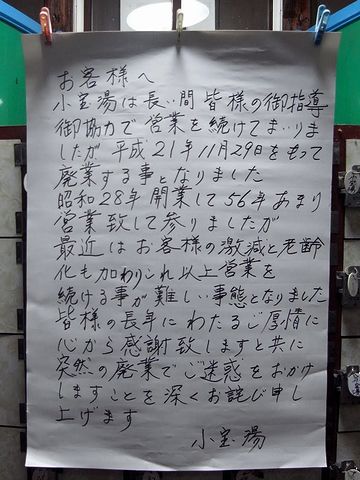 お客様へ
小宝湯は長い間皆様の御指導
御協力で営業を続けてまいりま
したが平成21年11月29日をもって
廃業する事となりました
昭和28年開業して56年あまり
営業致して参りましたが
最近はお客様の激減と老齢
化も加わりこれ以上営業を
続ける事が難しい事態となりました
皆様の長年にわたるご厚情に
心から感謝致しますと共に
突然の廃業でご迷惑をおかけ
しますことを深くお詫び申し
上げます
小宝湯